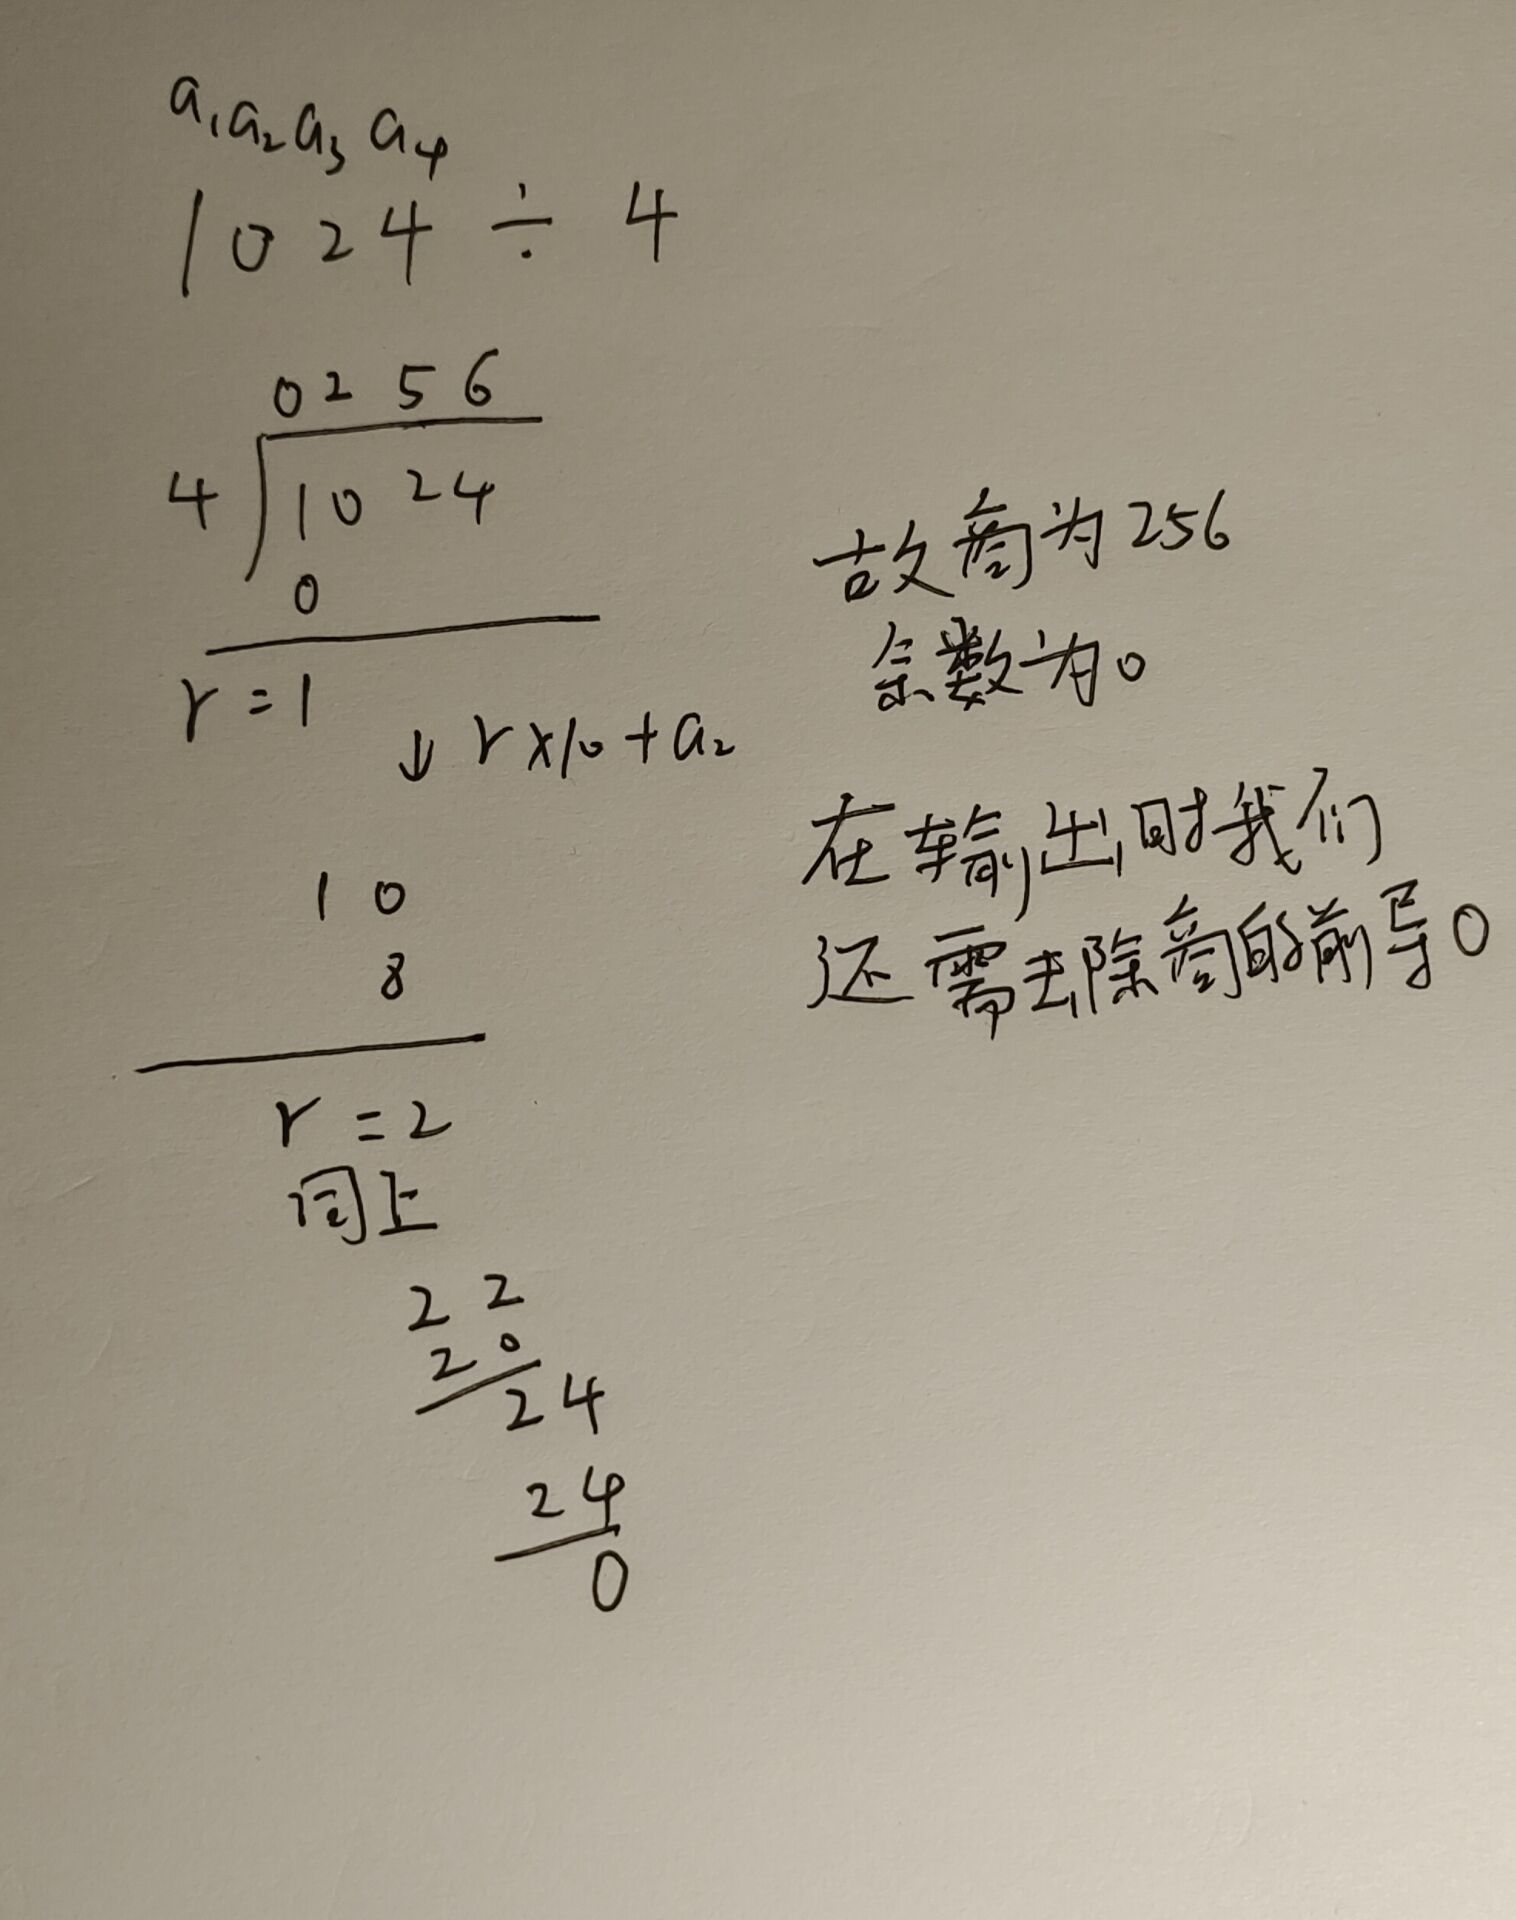 a₁a₂a₃a₄
1024÷4
0256
4 1024
0
r=1
↓r×10+a₂
10
8
r=2
同上
22
20
24
24
0
故商为256
余数为0
在输出时我们
还需去除商的前导0